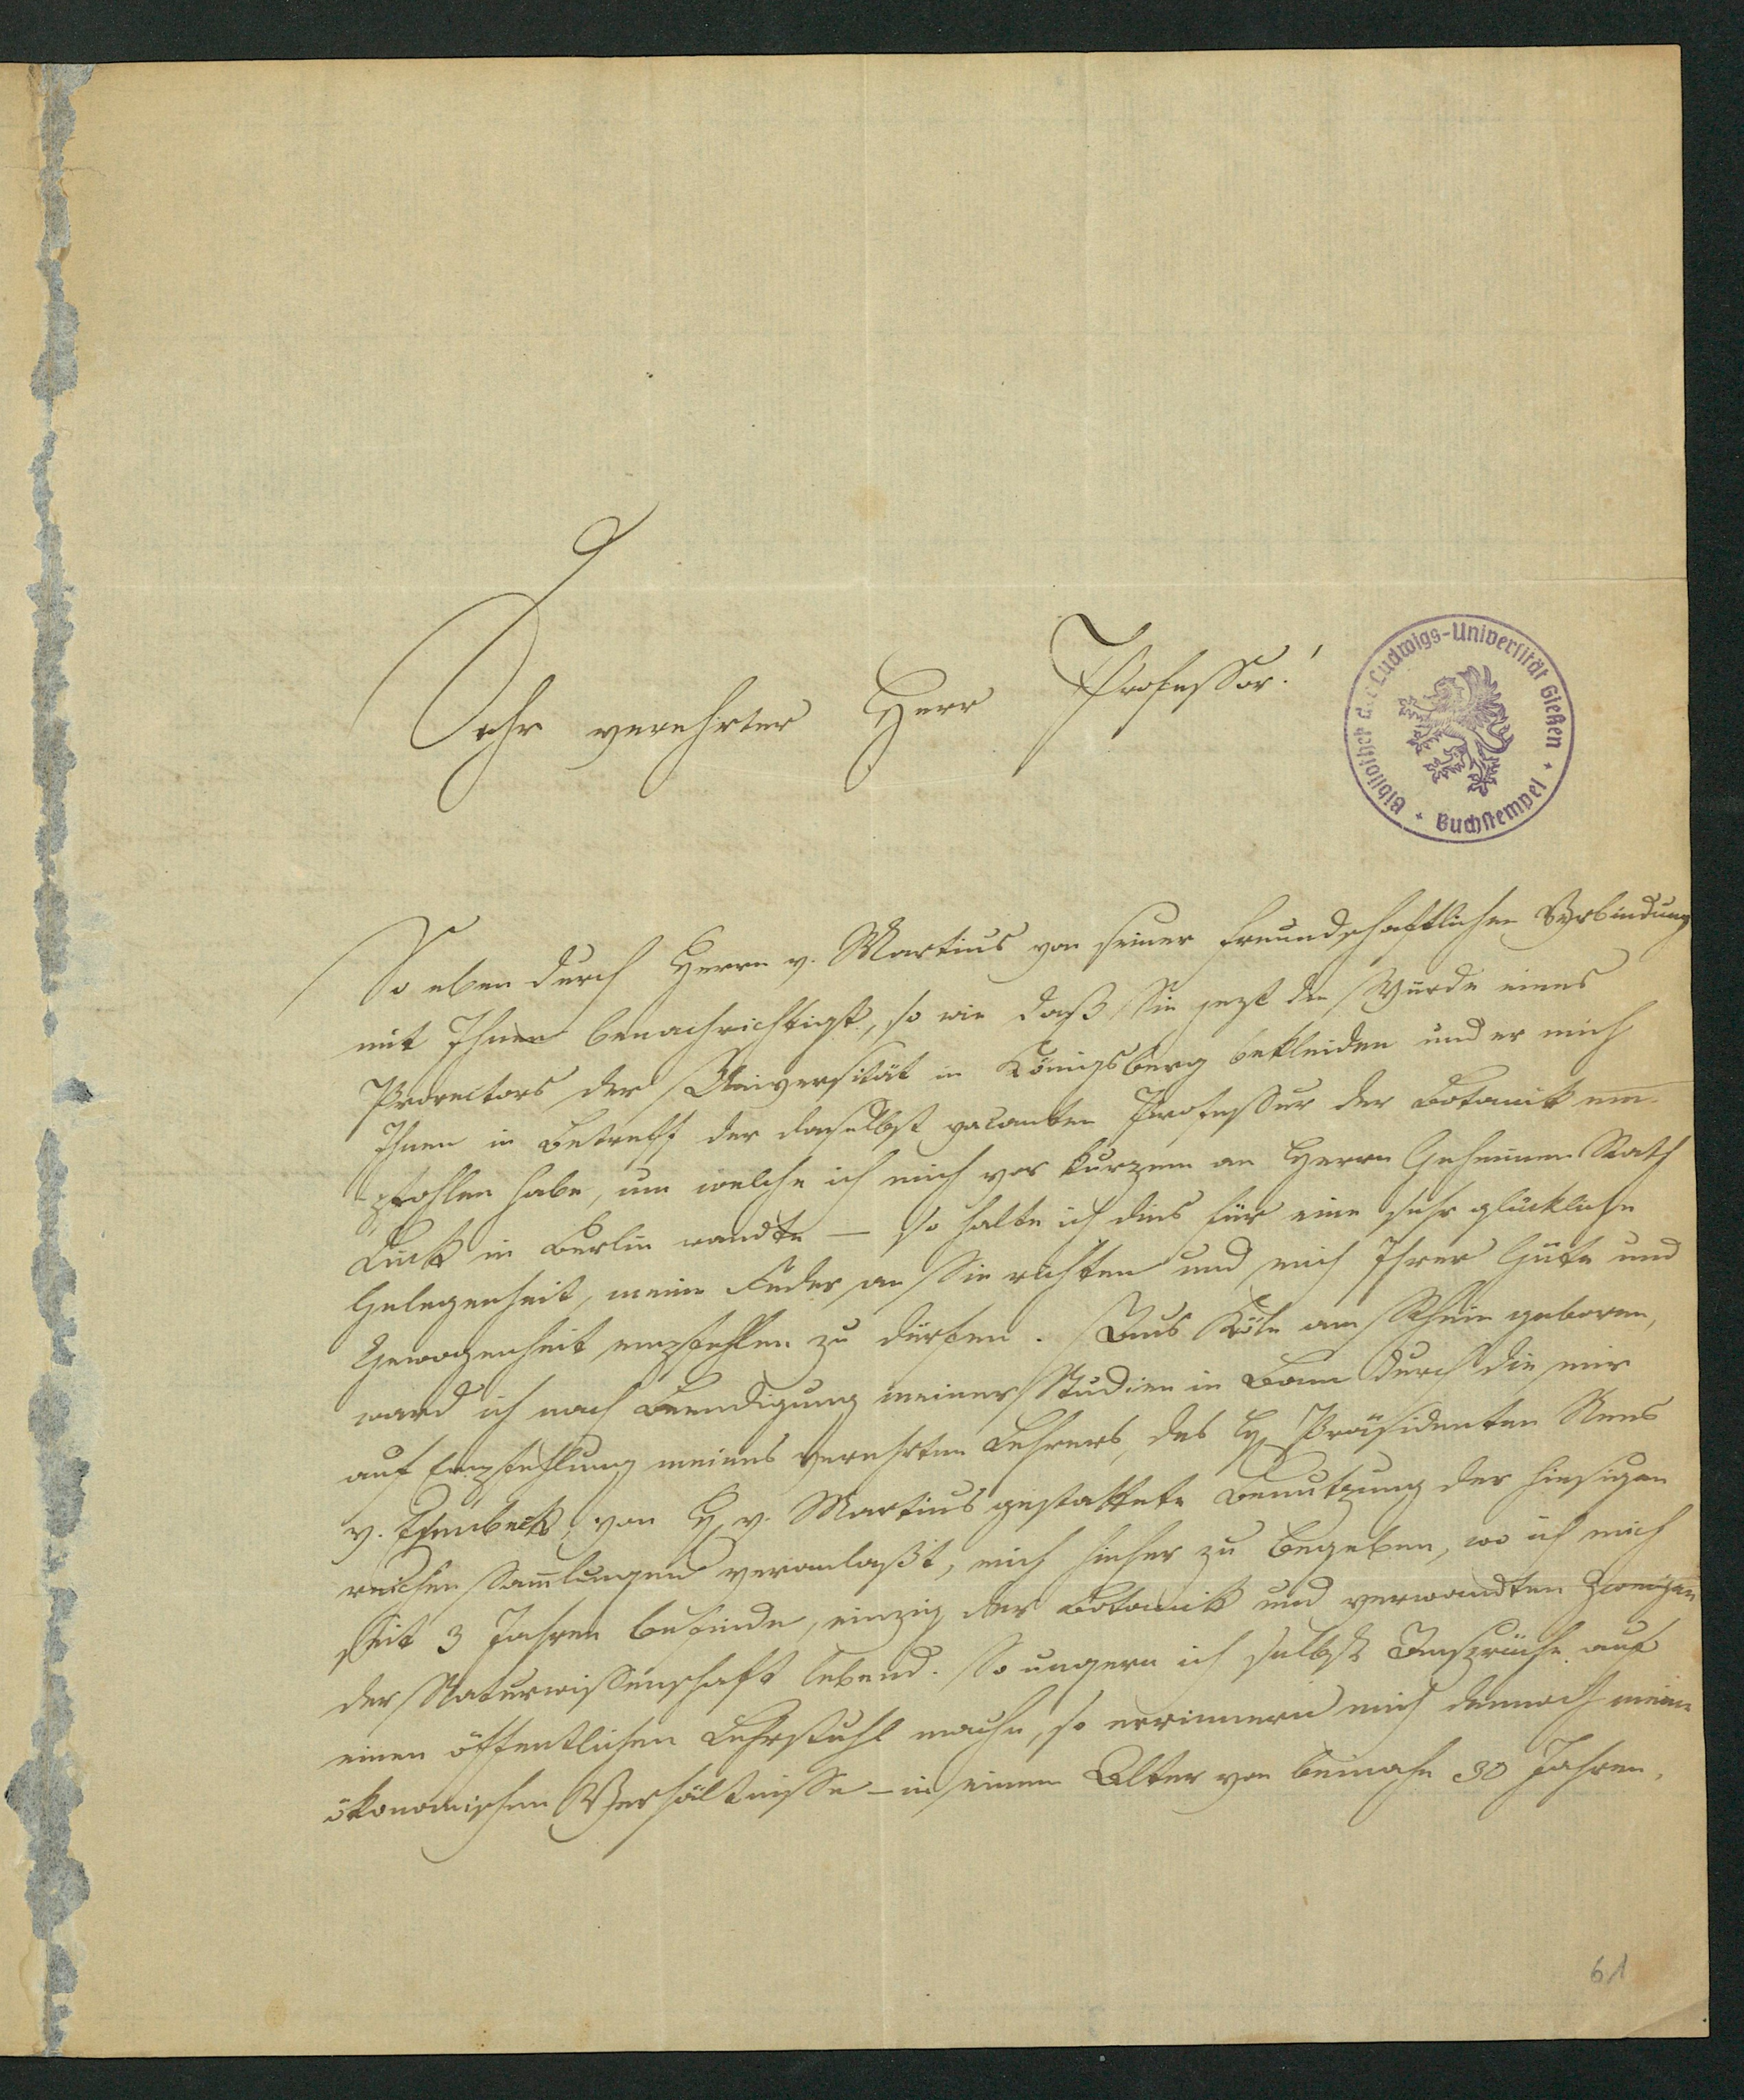 Sehr verehrter Herr Professor!
Bibliothek der Ludwigs-Universität Gießen
* Buchstempel *
So eben durch Herrn v. Martius von seiner freundschaftlichen Verbindung
mit Ihnen benachrichtigt, so wie daß Sie jezt die Würde eines
Prorectors der Universität in Königsberg bekleiden und er mich
Ihnen in Betreff der daselbst vacanten Professur der Botanik em-
pfohlen habe, um welche ich mich vor kurzem an Herrn Geheimen Rath
Link in Berlin wandte – so halte ich dies für eine sehr glückliche
Gelegenheit, meine Feder an Sie richten und mich Ihrer Güte und
Gewogenheit empfehlen zu dürfen. Aus Köln am Rhein geboren,
ward ich nach Beendigung meiner Studien in Bonn durch die mir
auf Empfehlung meines verehrten Lehrers, des H. Präsidenten Nees
v. Esenbeck, von H. v. Martius gestattete Benutzung der hiesigen
reichen Sammlungen veranlaßt, mich hieher zu begeben, wo ich mich
seit 3 Jahren befinde, einzig der Botanik und verwandten Zweigen
der Naturwissenschaft lebend. So ungern ich selbst Ansprüche auf
einen öffentlichen Lehrstuhl mache, so erinnern mich dennoch meine
ökonomischen Verhältnisse – in einem Alter von beinahe 30 Jahren,
61